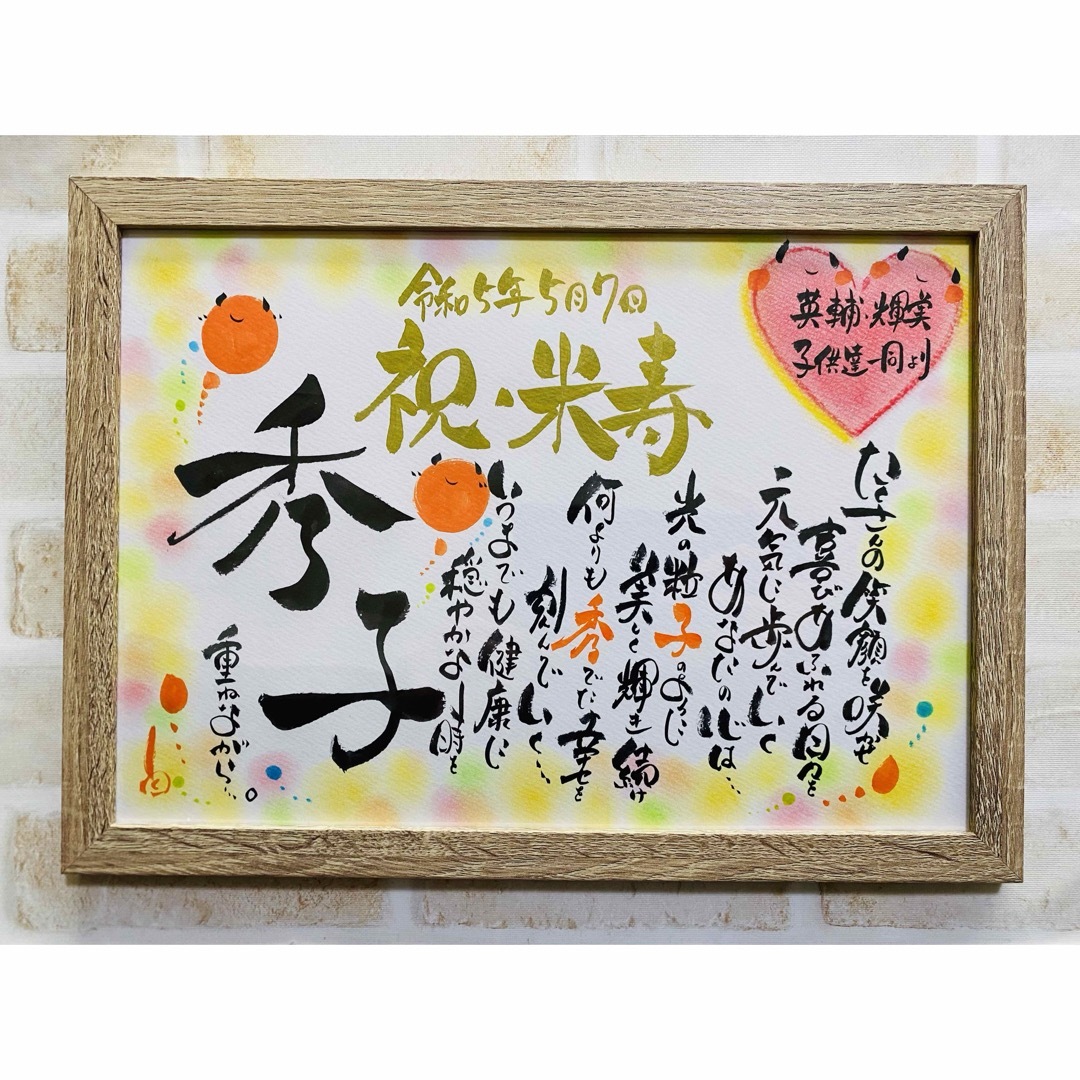 令和5年5月7日
祝・米寿
英輔・輝美
子供達一同より
たくさんの笑顔を咲かせ
喜びあふれる日々を
元気に歩んでいく
あなたの心は…
光の粒子のように
美しく輝き続け
何よりも秀でた幸せを
刻んでいく…
いつまでも健康に
穏やかな時を
重ねながら…。
秀子